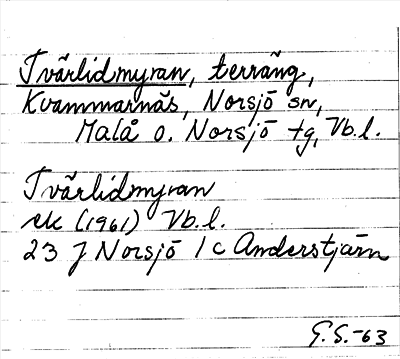 Tvärlidmyran, terräng,
Kvammarnäs, Norsjö sn,
Malå o. Norsjö tg, Vb.l.
Tvärlidmyran
ek (1961) Vb.l.
23 J Norsjö 1 c Anderstjärn
G.S.-63